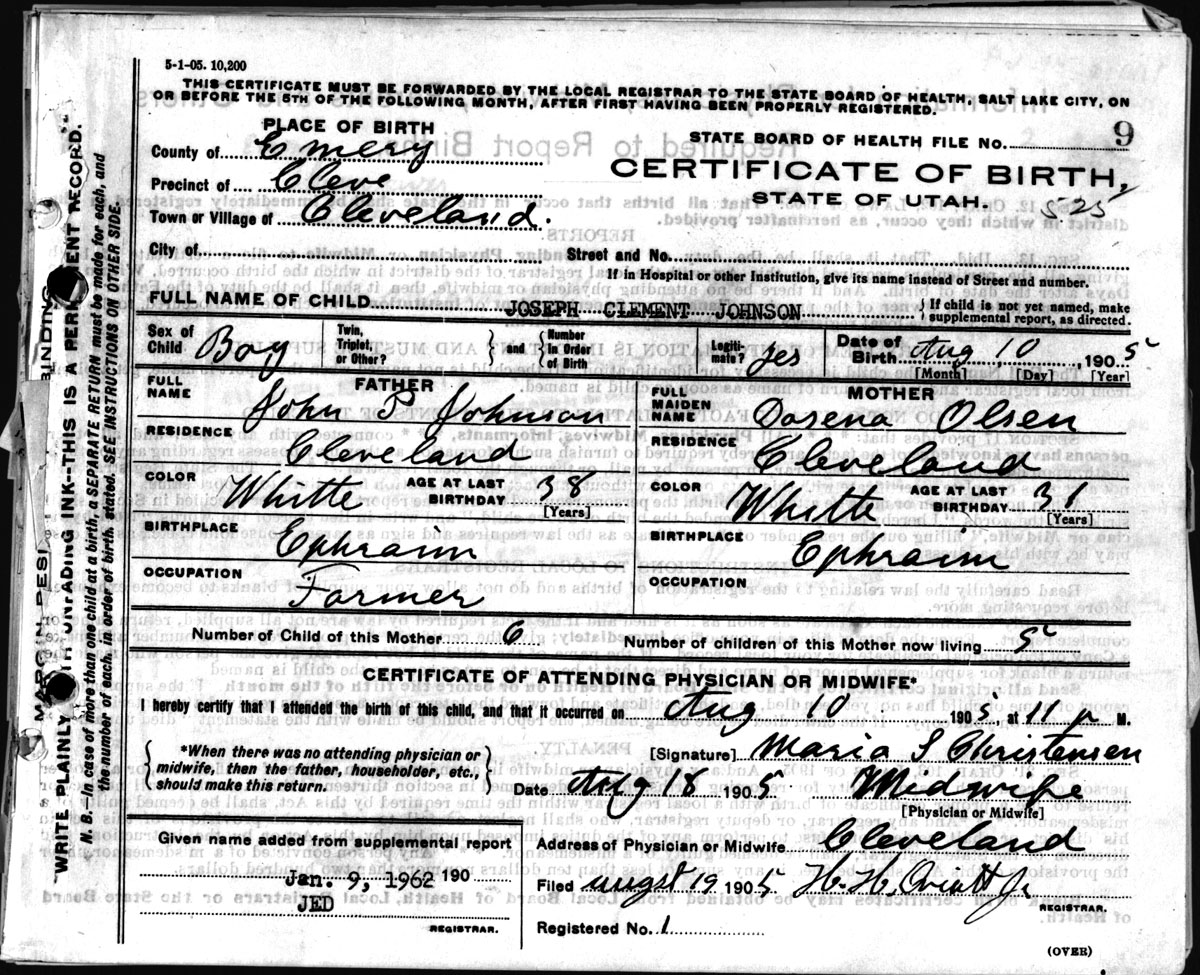 5-1-05. 10,200
THIS CERTIFICATE MUST BE FORWARDED BY THE LOCAL REGISTRAR TO THE STATE BOARD OF HEALTH, SALT LAKE CITY, ON
OR BEFORE THE 5TH OF THE FOLLOWING MONTH, AFTER FIRST HAVING BEEN PROPERLY REGISTERED.
PLACE OF BIRTH
STATE BOARD OF HEALTH FILE No. 9
County of Emery
CERTIFICATE OF BIRTH,
Precinct of Cleve
STATE OF UTAH. 525
Town or Village of Cleveland.
City of
Street and No.
If in Hospital or other Institution, give its name instead of Street and number.
FULL NAME OF CHILD JOSEPH CLEMENT JOHNSON { If child is not yet named, make supplemental report, as directed.
Sex of Child Boy Twin, Triplet, or Other? } and { Number in Order of Birth Legiti- mate? yes Date of Birth Aug 10 1905
[Month] [Day] [Year]
FATHER
FULL NAME John P Johnson
RESIDENCE Cleveland
COLOR Whitte AGE AT LAST BIRTHDAY 38
[Years]
BIRTHPLACE Ephraim
OCCUPATION Farmer
MOTHER
FULL MAIDEN NAME Dosena Olsen
RESIDENCE Cleveland
COLOR Whitte AGE AT LAST BIRTHDAY 31
[Years]
BIRTHPLACE Ephraim
OCCUPATION
Number of Child of this Mother 6 Number of children of this Mother now living 5
CERTIFICATE OF ATTENDING PHYSICIAN OR MIDWIFE*
I hereby certify that I attended the birth of this child, and that it occurred on Aug 10 1905, at 11 p M.
*When there was no attending physician or
midwife, then the father, householder, etc.,
should make this return.
[Signature] Maria S Christensen
Date Aug 18 1905 Midwife
[Physician or Midwife]
Given name added from supplemental report
Jan. 9, 1962 190
JED
REGISTRAR.
Address of Physician or Midwife Cleveland
Filed august 19 1905 H. H. Oviatt Jr
REGISTRAR.
Registered No. 1
(OVER)
WRITE PLAINLY WITH UNFADING INK--THIS IS A PERMANENT RECORD.
N. B.--In case of more than one child at a birth, a SEPARATE RETURN must be made for each, and
the number of each, in order of birth, stated. SEE INSTRUCTIONS ON OTHER SIDE.